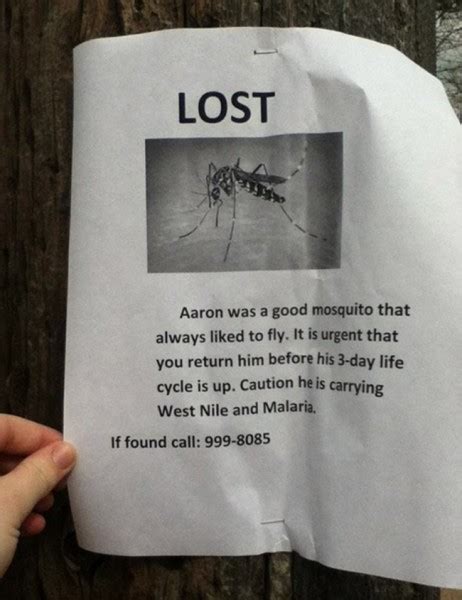 LOST
Aaron was a good mosquito that
always liked to fly. It is urgent that
you return him before his 3-day life
cycle is up. Caution he is carrying
West Nile and Malaria.
If found call: 999-8085